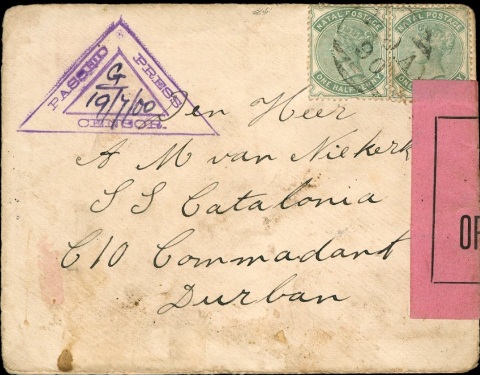 NATAL POSTAGE NATAL POSTAGE
ONE HALFPENNY ONE
PASSED PRESS
CENSOR.
G
19/7/00
Den Heer
A M van Niekerk
S S Catalonia
C/O Commadant
Durban